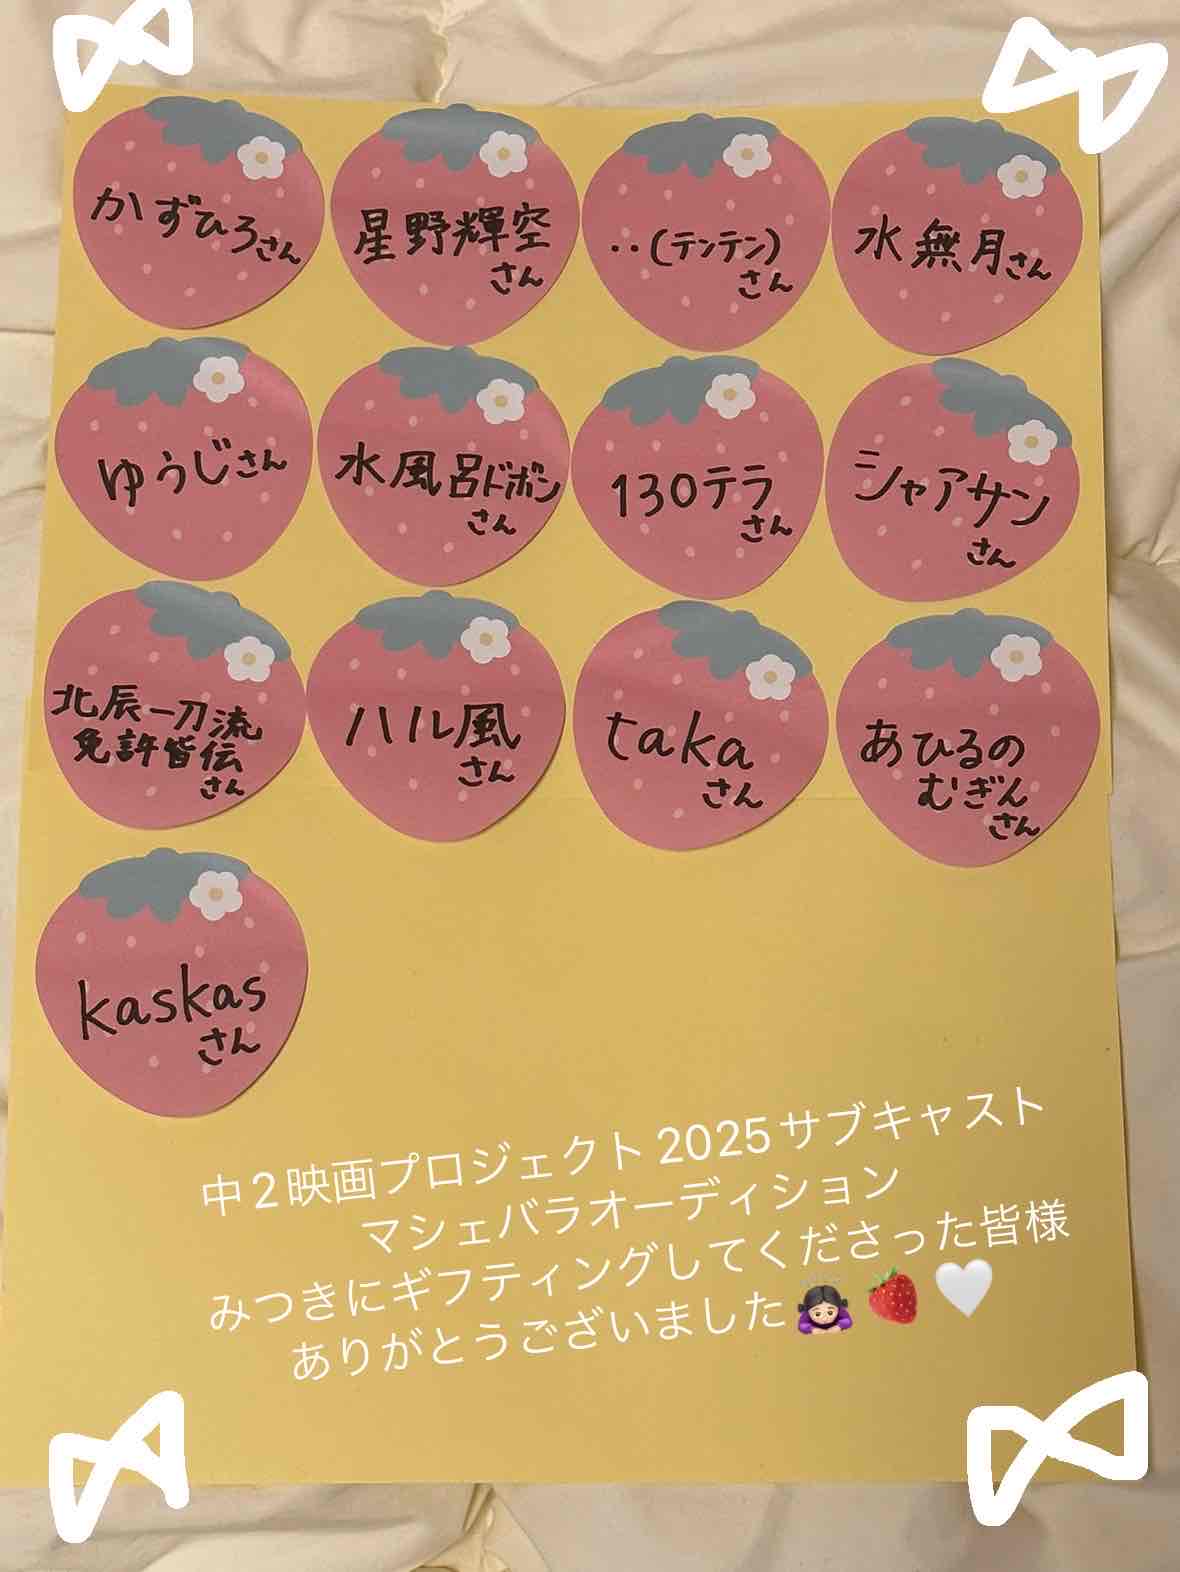 かずひろさん
星野輝空
さん
‥(テンテン)
さん
水無月さん
ゆうじさん
水風呂ドボン
さん
130テラ
さん
シャアサン
さん
北辰一刀流
免許皆伝
さん
ハル風
さん
taka
さん
あひるの
むぎん
さん
kaskas
さん
中2映画プロジェクト2025サブキャスト
マシェバラオーディション
みつきにギフティングしてくださった皆様
ありがとうございました🙇🏻‍♀️🍓🤍